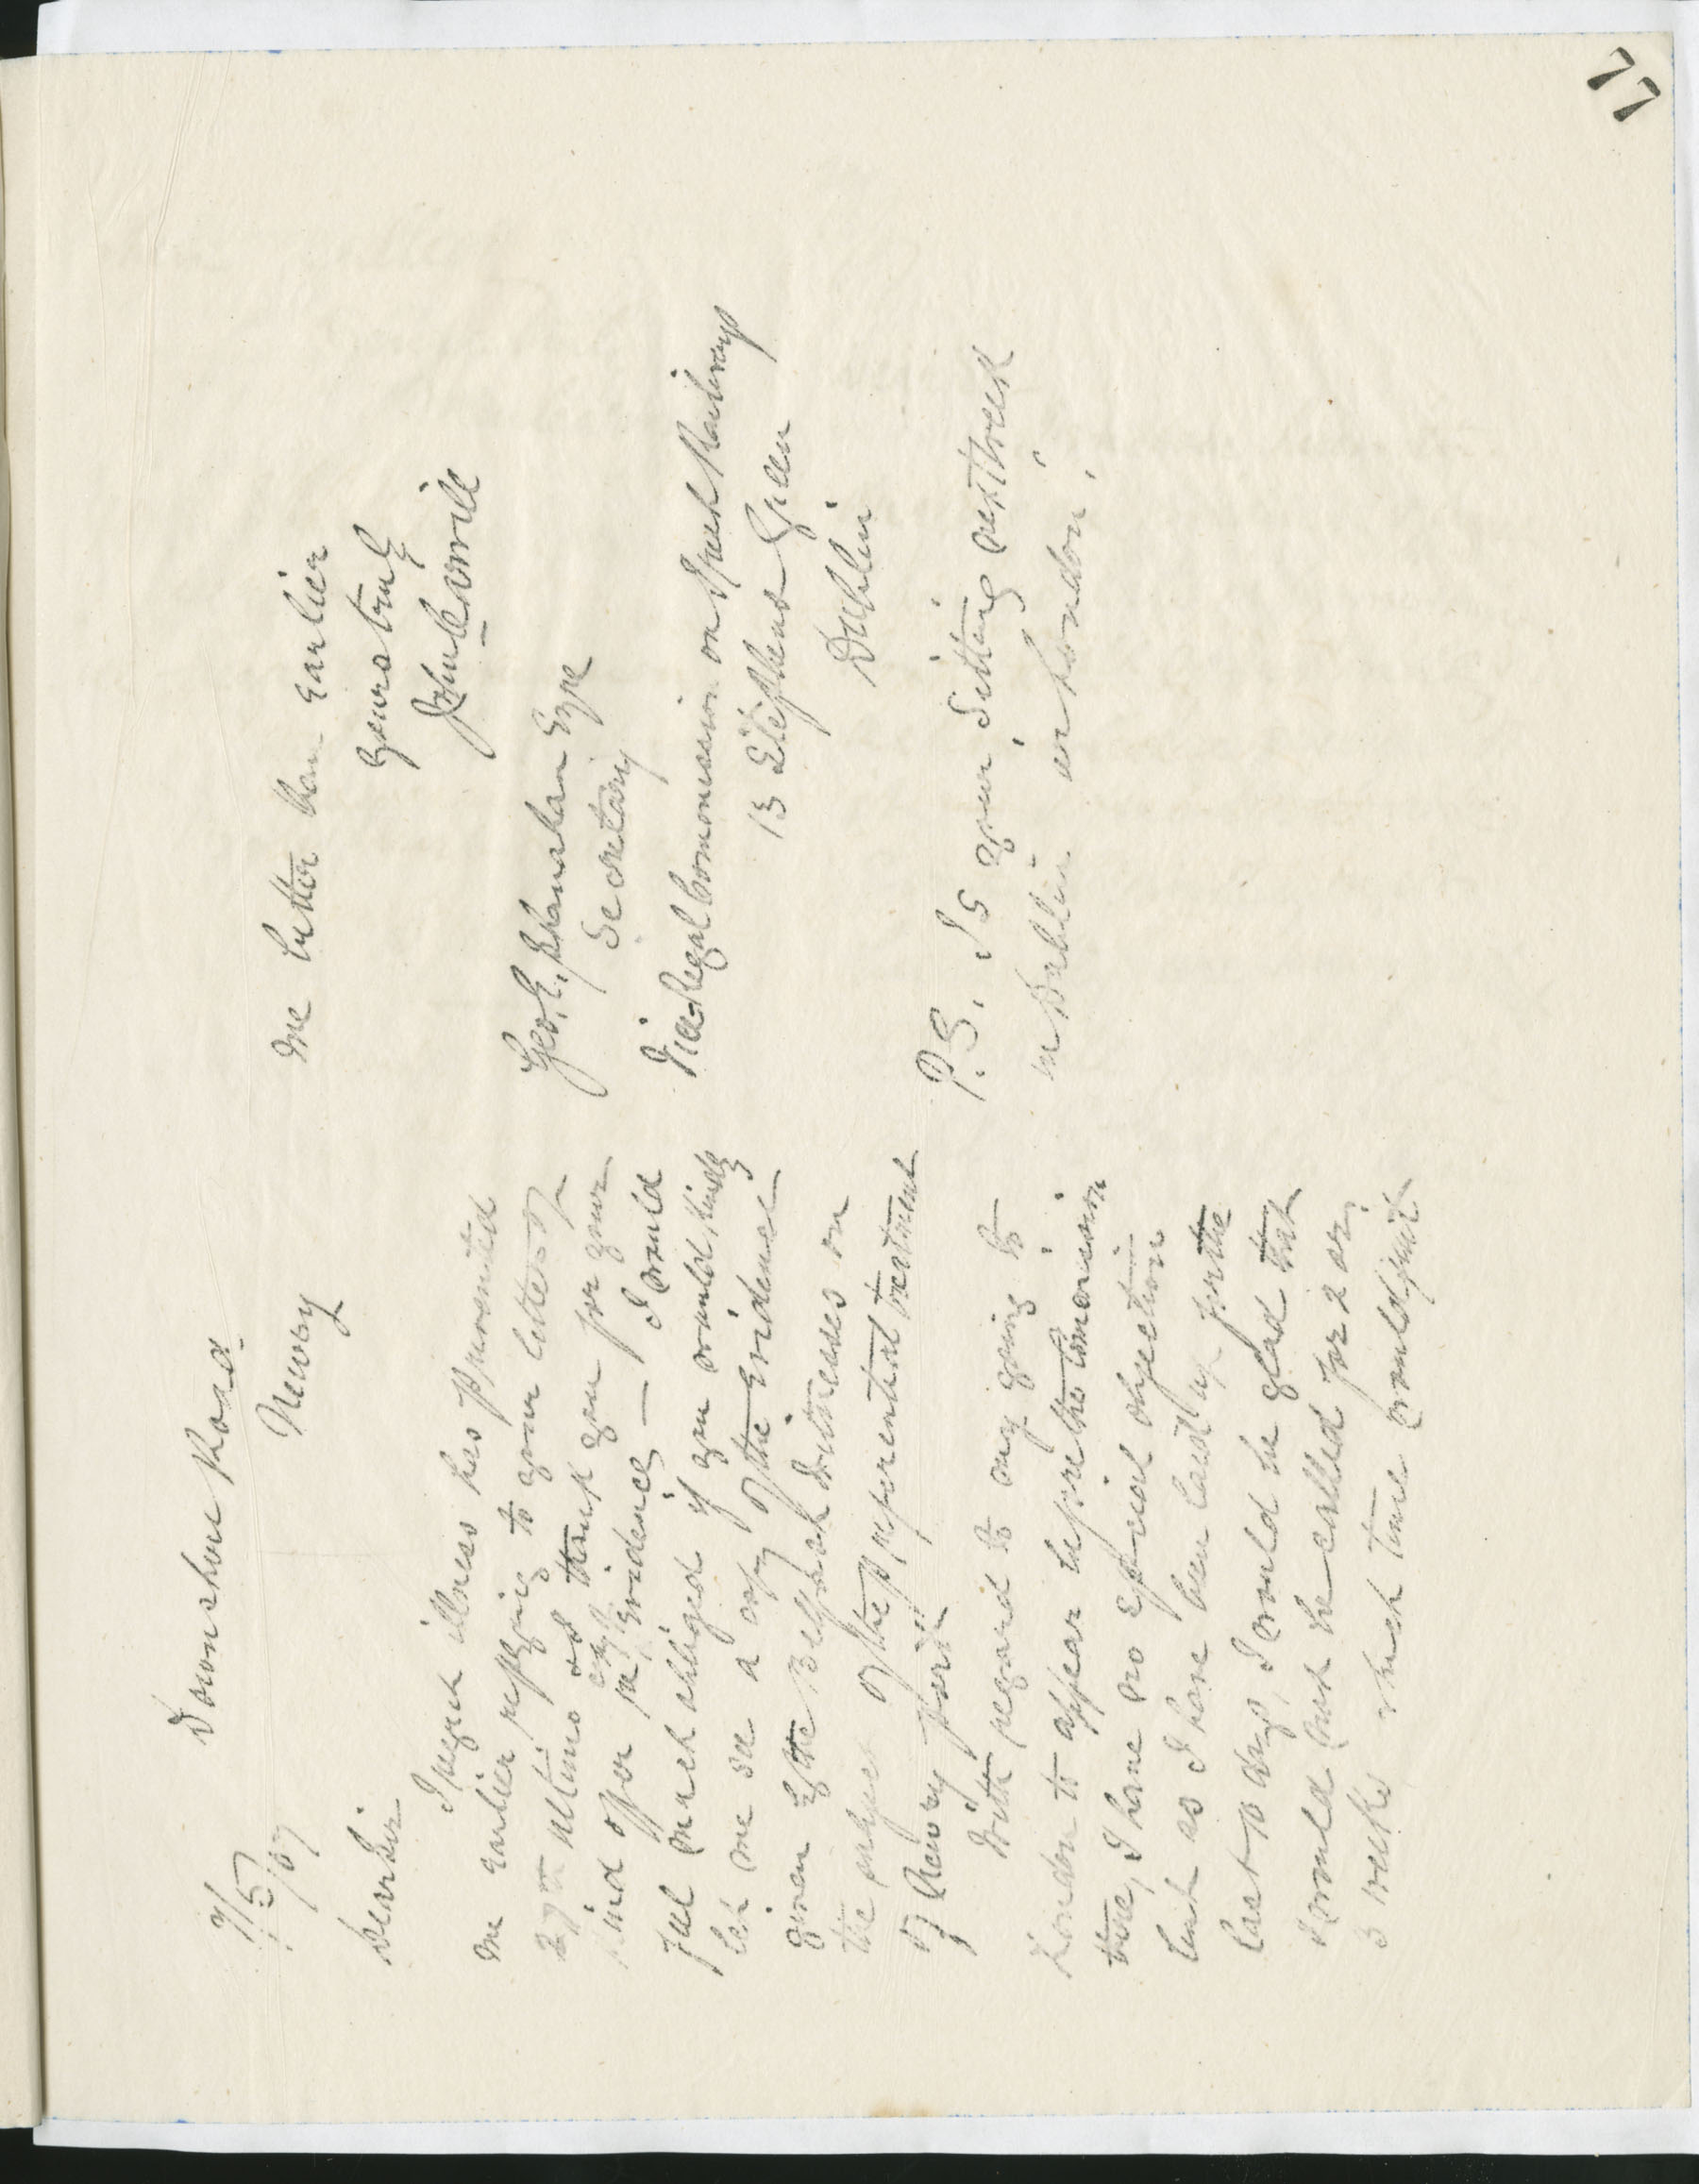 77
Downshire Road
Newry
7/5/07
Dear Sir
I regret illness has prevented
me earlier replying to your letter of
27th ultimo and thank you for your
kind offer re evidence — I would
feel much obliged if you would kindly
let me see a copy of the Evidence
given by the Belfast Witnesses on
the subject of the preferential treatment
of Newry port.
With regard to my going to
London to appear before the Commission
there, I have no especial objection
but as I have been laid up for the
last 10 days, I would be glad that
I would not be called for 2 or
3 weeks which time would suit
me better than earlier
yours truly
John
Geo. E. Shanahan Esqre
Secretary
Vice-Regal Commission on Irish Railways
13 Stephens Green
Dublin
P.S. Is your sitting next week
in Dublin or London.